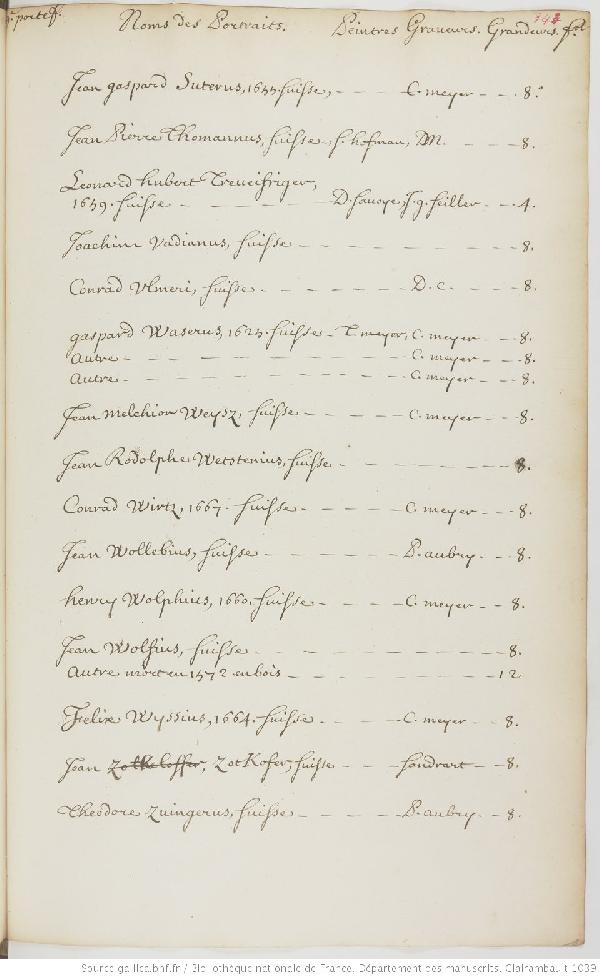 portef. Noms des Portraits. Peintres Graveurs. Grandeurs. fol
Jean gaspard Suterus, 1655. suisse, - - - C. meyer - - . 8.°
Jean Pierre Thomannus, suisse - f. hofman, - - - 8.
Leonard hubert
1659. suisse - - - - - D. savoye, J. g. seiller - - . 4.
Joachim Vadianus, suisse - - - - - - - 8.
Conrad Ulmeri, suisse. - - - - D. c. - - . 8.
gaspard Waserus, 1625. suisse - T. meyer, C. meyer - - . 8.
autre - - - - - - - - C. meyer - - . 8.
autre - - - - - - - - C. meyer - - . 8.
Jean melchior Weysz, suisse - - - - C. meyer - - . 8.
Jean Rodolphe Wetstenius, suisse - - - - - - - 8.
Conrad Wirtz, 1667. suisse - - - - C. meyer - - . 8.
Jean Wollebius, suisse - - - - - P. aubry - - . 8.
henry Wolphius, 1660. suisse - - - - C. meyer - - . 8.
Jean Wolfius, suisse - - - - - - - 8.
autre mort en 1572 en bois - - - - - - - 12
Felix Wyssius, 1664. suisse - - - - C. meyer - - 8.
Jean zotkeloffer, zotKofer, suisse - - - sandrart - - . 8.
theodore zuingerus, suisse - - - - - P. aubry - - 8.
Source gallica.bnf.fr / Bibliothèque nationale de France. Département des manuscrits. Clairambault 1039